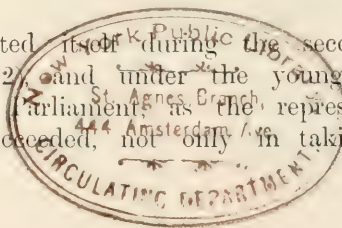 ted itself during the seco
2), and under the young
Parliament, as the repres
cceeded, not only in taki
New York Public Library
St. Agnes Branch,
444 Amsterdam Ave.
CIRCULATING DEPARTMENT